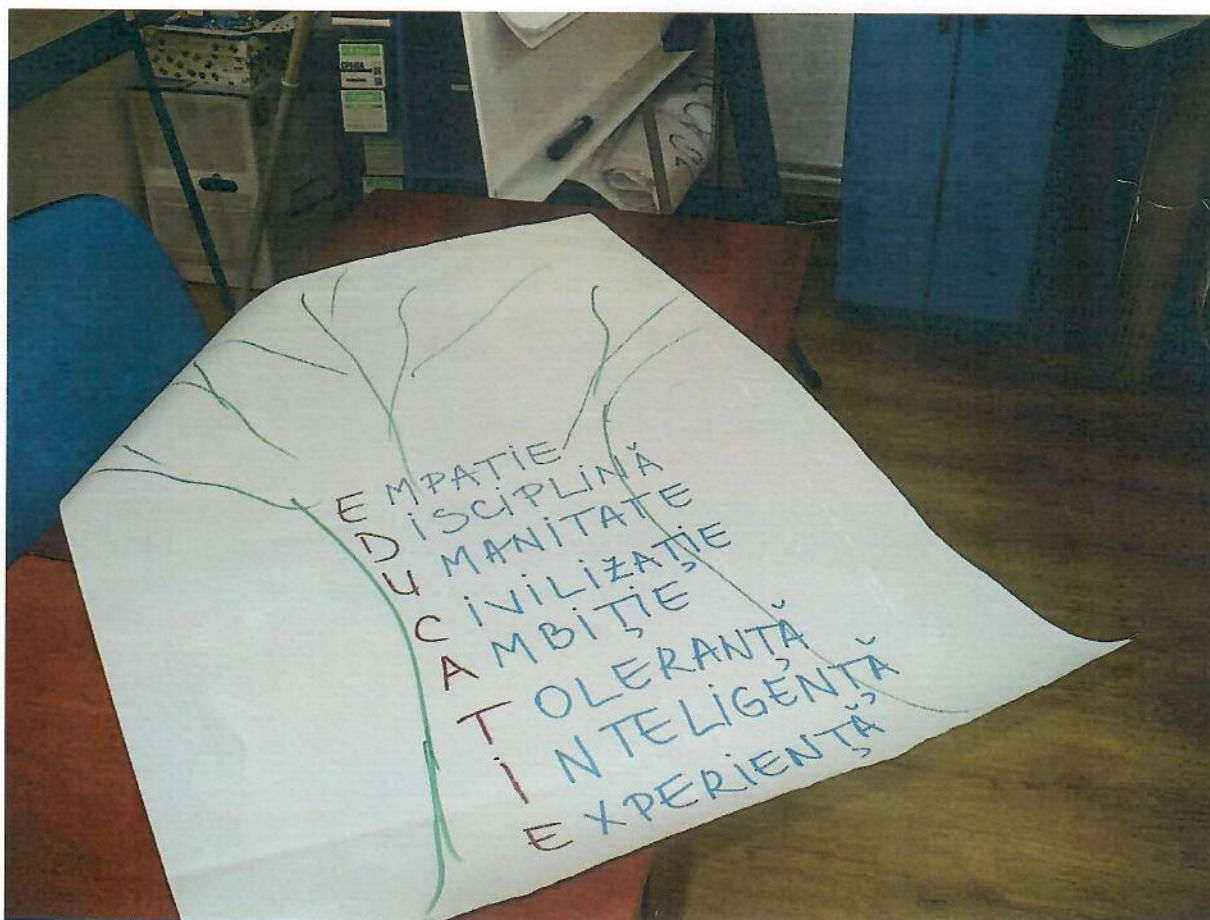 EMPAȚIE
DISCIPLINĂ
UMANITATE
CIVILIZAȚIE
AMBIȚIE
TOLERANȚĂ
INTELIGENȚĂ
EXPERIENȚĂ